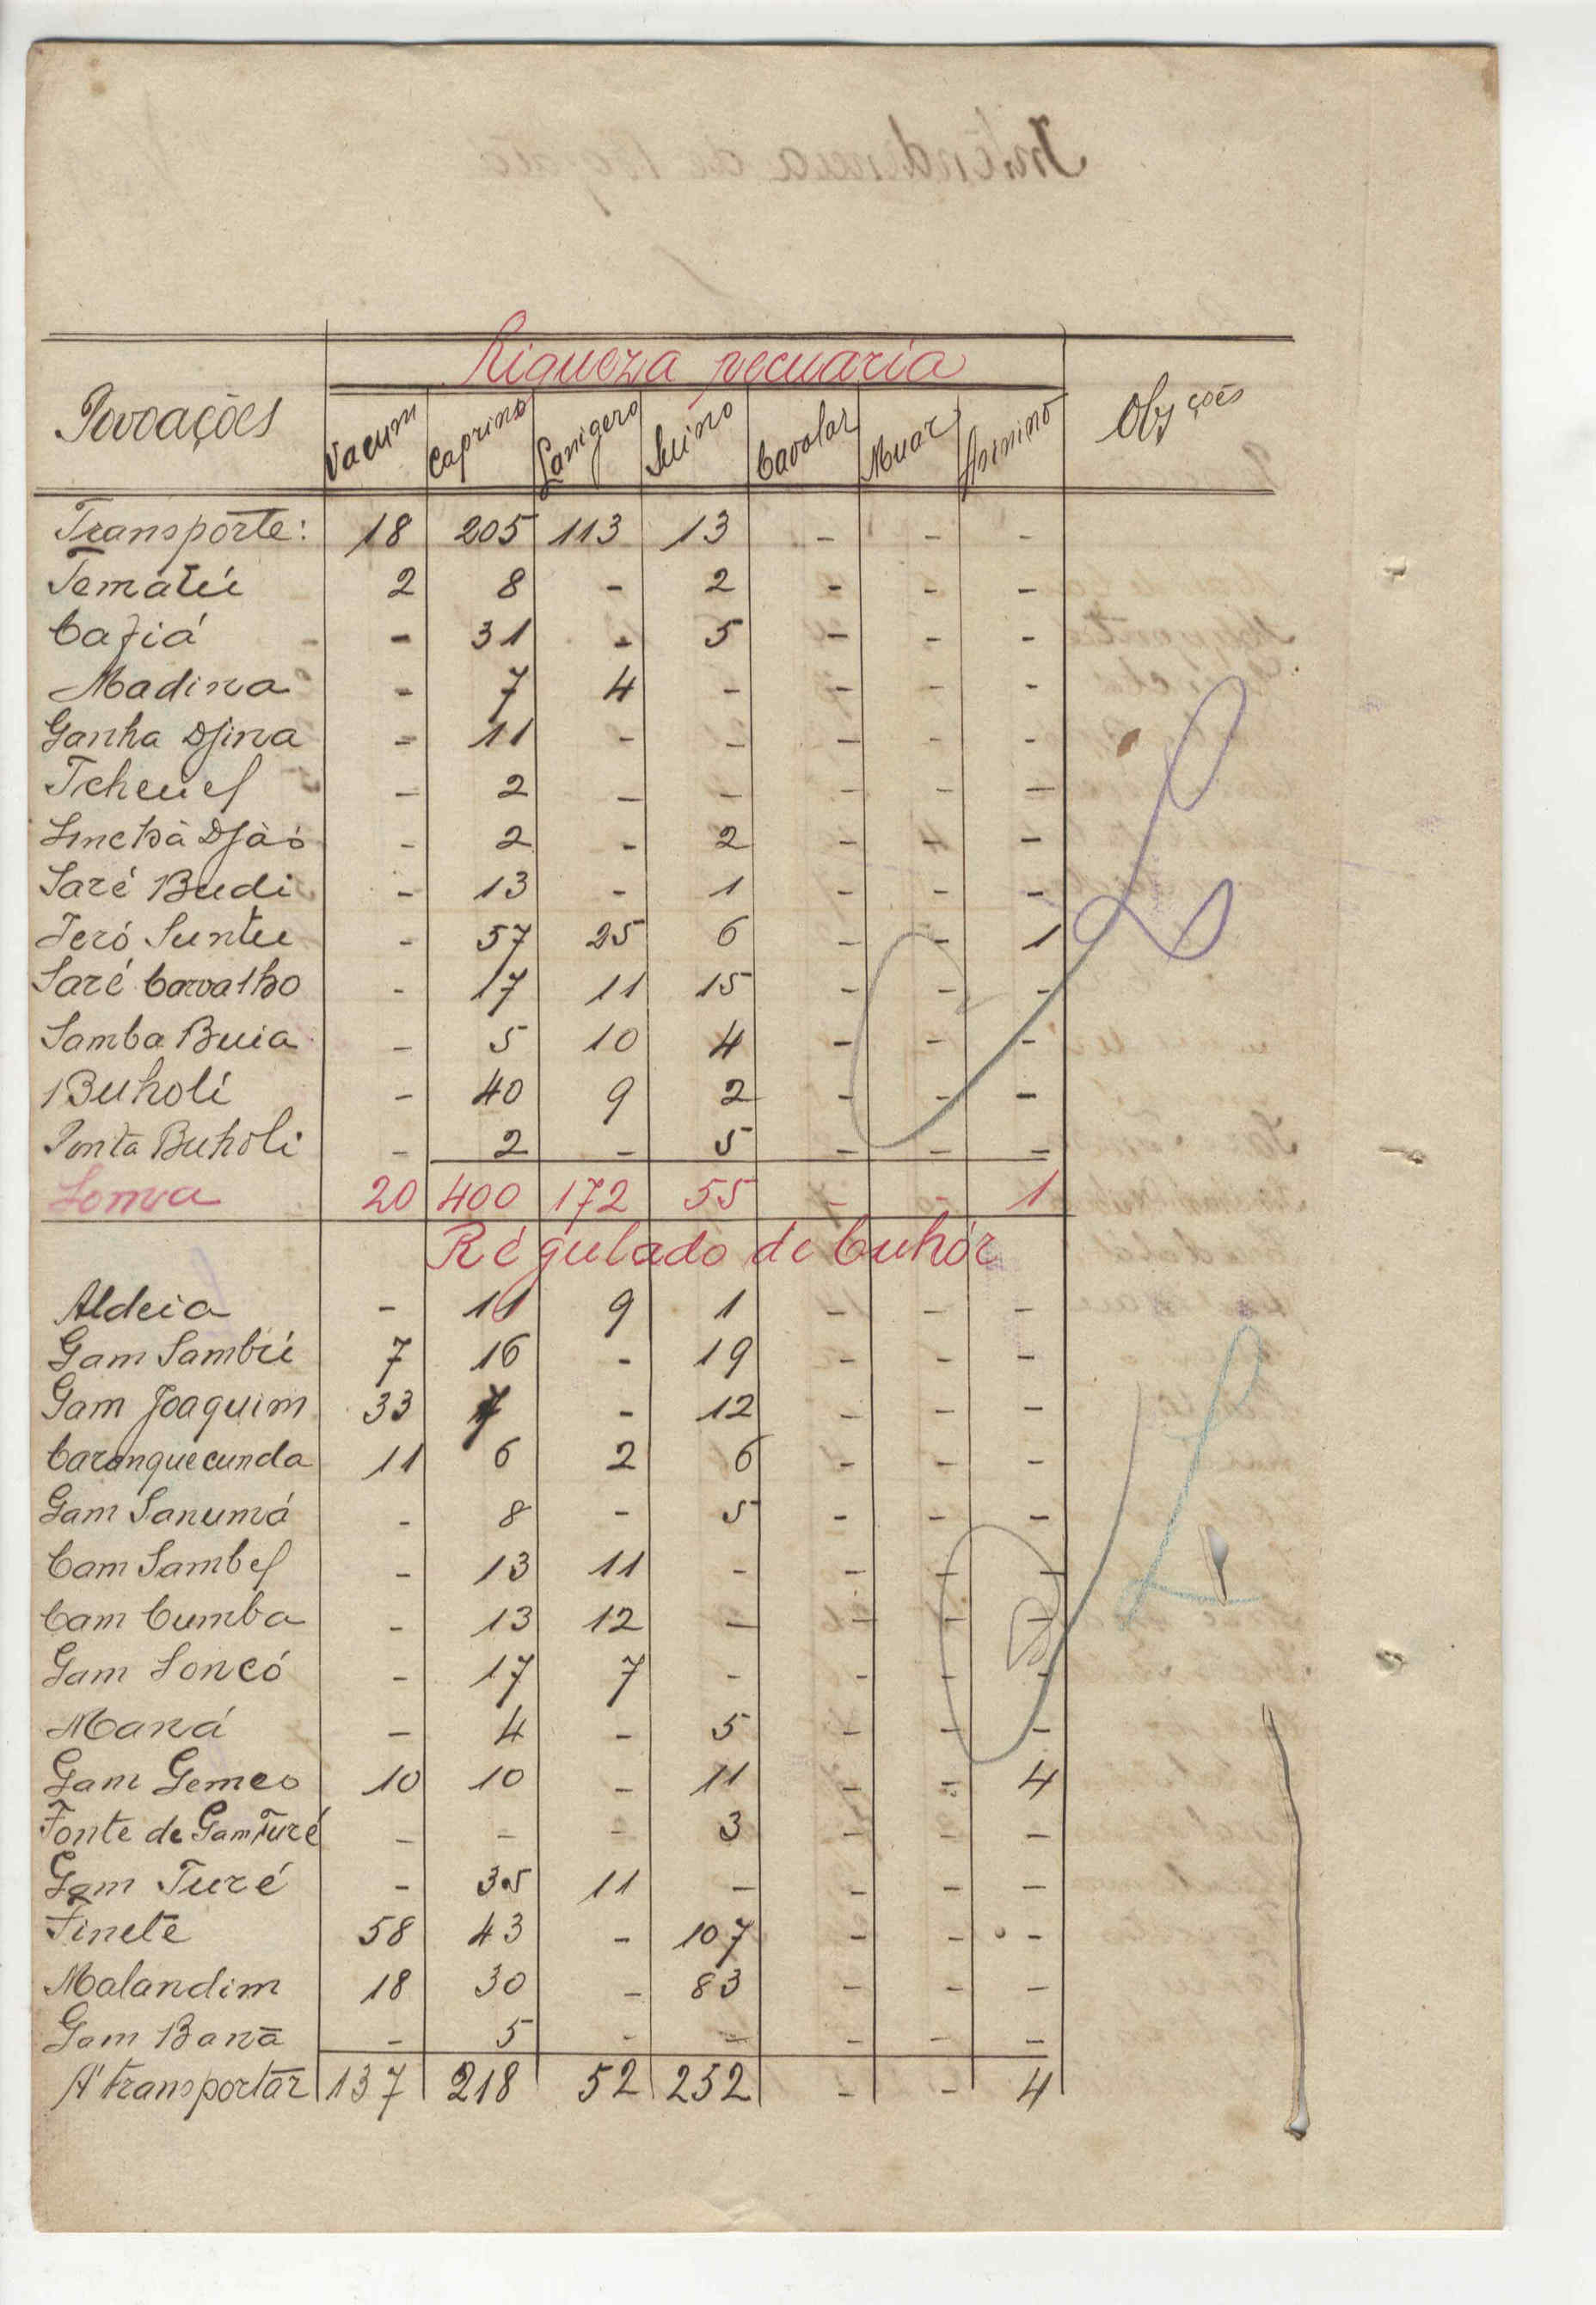 Riqueza pecuaria
Povoações Vacum Caprino Lanigero Suino Cavalar Muar Asinino Obsções
Transporte: 18 205 113 13 - - -
Tematú 2 8 - 2 - - -
Cafiá - 31 - 5 - - -
Madina - 7 4 - - - -
Ganha Djina - 11 - - - - -
Tcheuel - 2 - - - - -
Sinchã Djàó - 2 - 2 - - -
Saré Budi - 13 - 1 - - -
Jeró Suntu - 57 25 6 - - 1
Saré Carvalho - 17 11 15 - - -
Samba Buia - 5 10 4 - - -
Buholi - 40 9 2 - - -
Ponta Buholi - 2 - 5 - - -
Soma 20 400 172 55 - - 1
Régulado de Cuhór
Aldeia - 11 9 1 - - -
Gam Sambú 7 16 - 19 - - -
Gam Joaquim 33 7 - 12 - - -
Caranquecunda 11 6 2 6 - - -
Gam Sanumá - 8 - 5 - - -
Cam Sambel - 13 11 - - - -
Cam Cumba - 13 12 - - - -
Gam Soncó - 17 7 - - - -
Maná - 4 - 5 - - -
Gam Gemeo 10 10 - 11 - - 4
Fonte de Gam Turé - - - 3 - - -
Gam Turé - 35 11 - - - -
Finete 58 43 - 107 - - -
Malandim 18 30 - 83 - - -
Gam Banã - 5 - - - - -
A transportar 137 218 52 252 - - 4